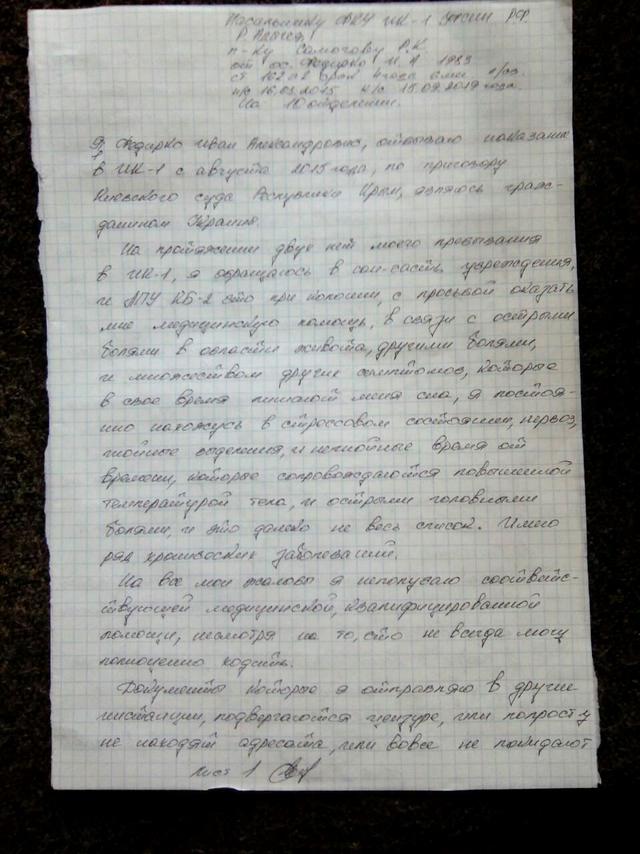 Начальнику ФКУ ИК-1 УФСИН РФ
Р. Адыгея
п-ку Самогову Р.К.
от ос. Федирко И. А 1983
ст 162 ч2 срок 4 года 6 ми
н/с 16.03.2015 к/с 15.09.2019 года.
10 отделении.
Я Федирко Иван Александрович, отбываю наказание
в ИК-1 с августа 2015 года, по приговору
Киевского суда Республики Крым, являюсь граж-
данином Украины.
На протяжении двух лет моего пребывания
в ИК-1, я обращаюсь в сан-часть учреждения,
и МПУ КБ-2 что при колонии, с просьбой оказать
мне медицинскую помощь, в связи с острыми
болями в области живота, другими болями,
и множеством других симптомов, которые
в свое время лишают меня сна, я постоя-
нно нахожусь в стрессовом состоянии, нервоз,
гнойные выделения, и негнойные время от
времени, которые сопровождаются повышенной
температурой тела, и острыми головными
болями, и это далеко не весь список. Имею
ряд хронических заболеваний.
На все мои жалобы я неполучаю соответс-
твующей медицинской, квалифицированной
помощи, несмотря на то, что не всегда могу
полноценно ходить.
Документы которые я отправляю в другие
инстанции, подвергаются цензуре, или попросту
не находят адресата, или вовсе не покидают
лист 1